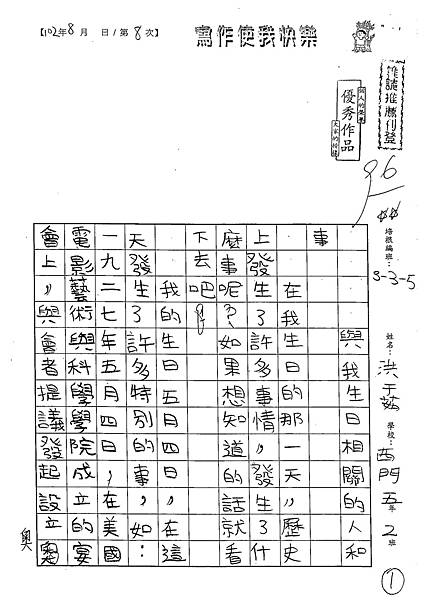 【102年8月 日/第8次】
寫作使我快樂
雜誌推薦刊登
個人的榮耀
優秀作品
大家的榜樣
96
培根編班：
S-3-5
姓名：洪于茹 學校：西門 五年2班
與我生日相關的人和
事
在我生日的那一天，歷史
上發生了許多事情，發生了什
麼事呢？如果想知道的話就看
下去吧！
我的生日五月四日，在這
天發生了許多特別的事，如：
一九二七年五月四日，在美國
電影藝術與科學學院成立的宴
會上，與會者提議發起設立奧
奧
1